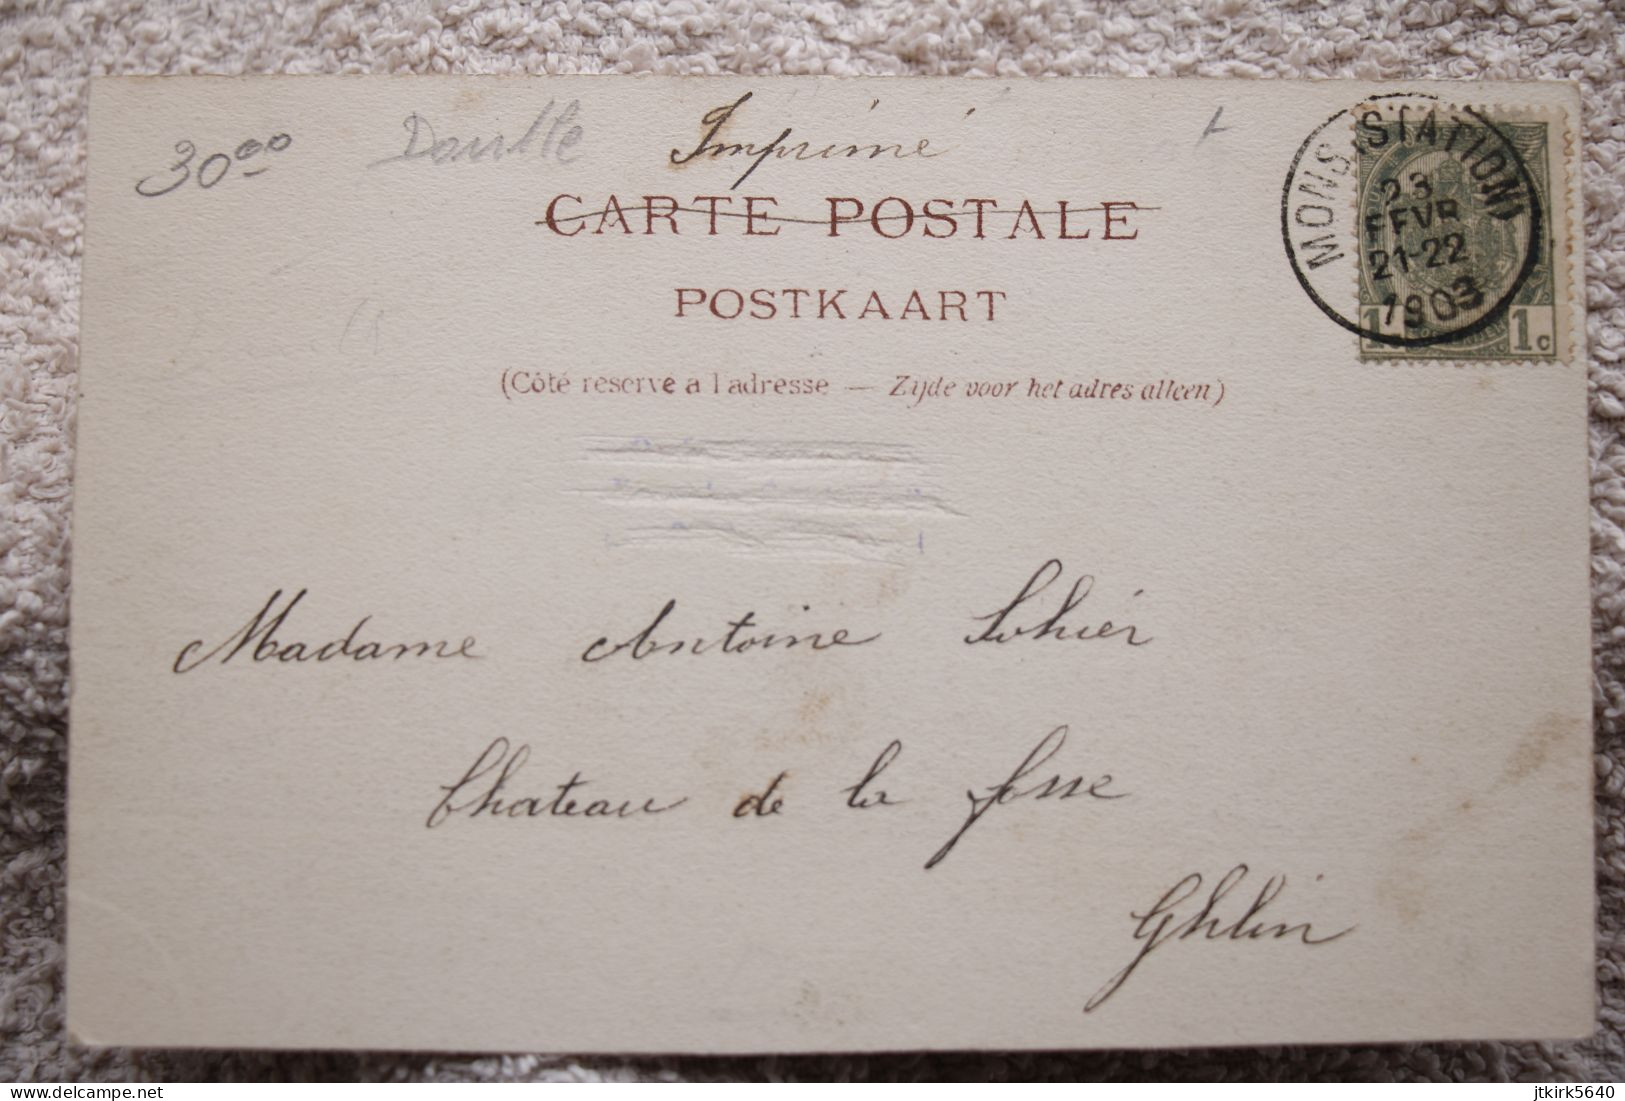 30⁰⁰ Double Imprimé
CARTE POSTALE
POSTKAART
(Côté réservé a l'adresse — Zijde voor het adres alleen)
MONS STATION
23
FEVR
21-22
1903
1c 1c
Madame Antoine Sohier
Chateau de la fosse
Ghlin
delcampe.net
jtkirk5640